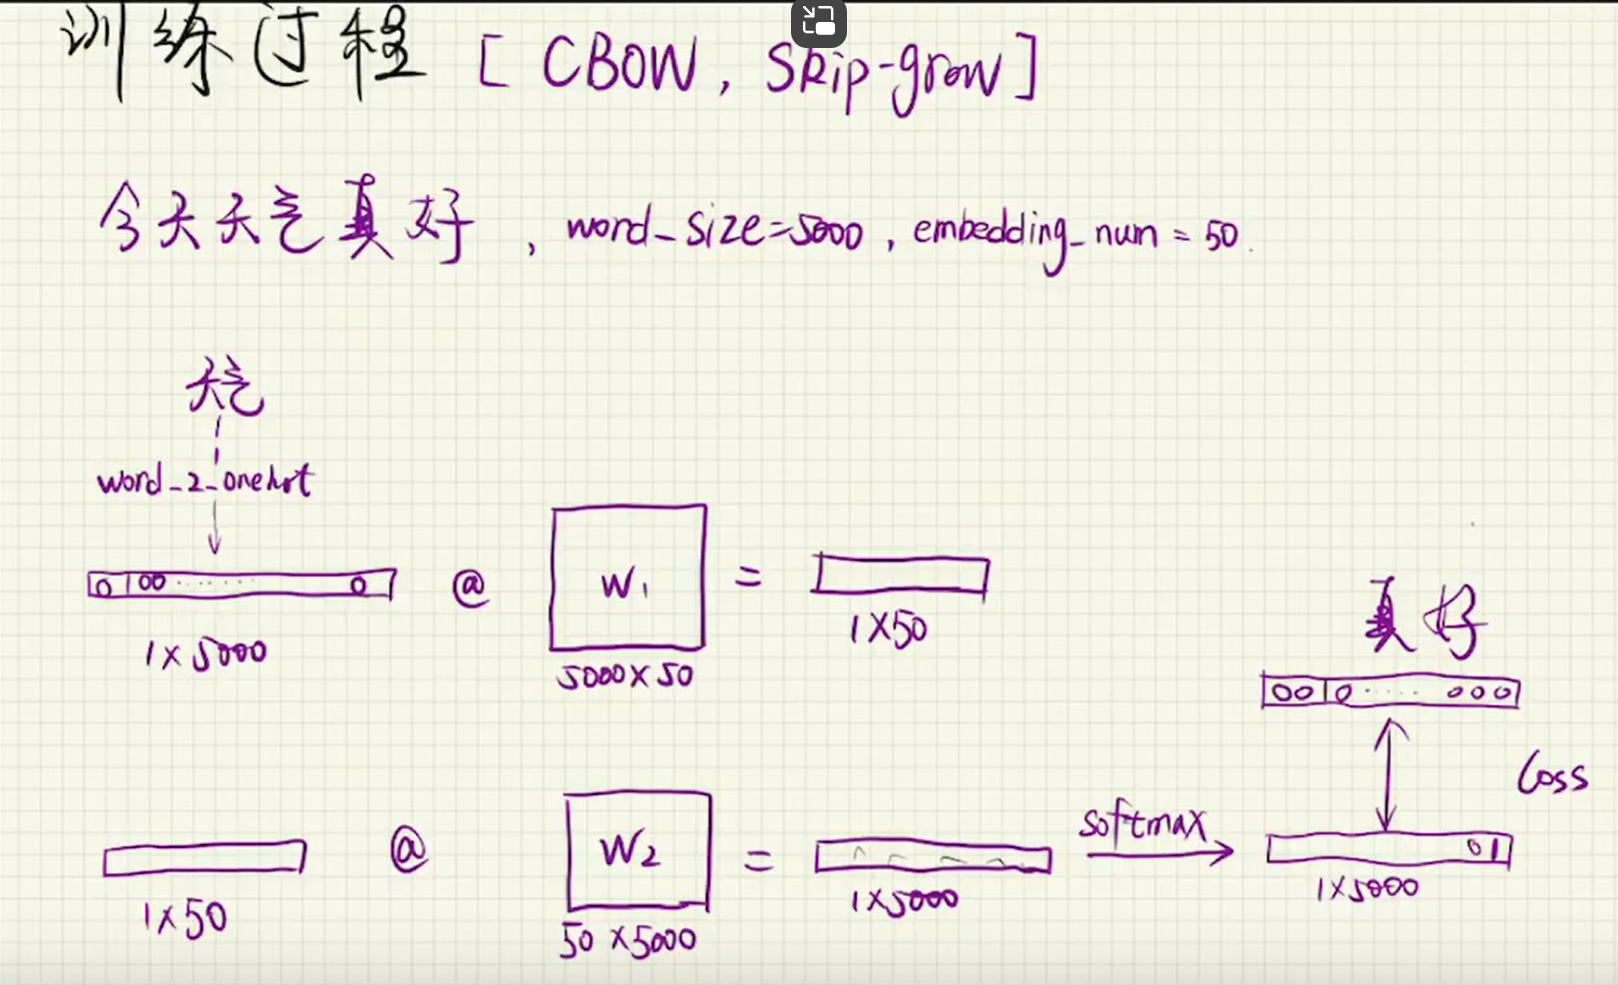 训练过程 [ CBOW, Skip-grow ]
今天天气真好, word_size=5000, embedding_num = 50.
天气
word_2_onehot
0 1 0 0 ...... 0 @ W1 =
1 X 5000
5000 X 50
1 X 50
真好
0 0 1 0 ..... 0 0 0
Loss
@ W2 = softmax
0 1
1 X 50
50 X 5000
1 X 5000
1 X 5000